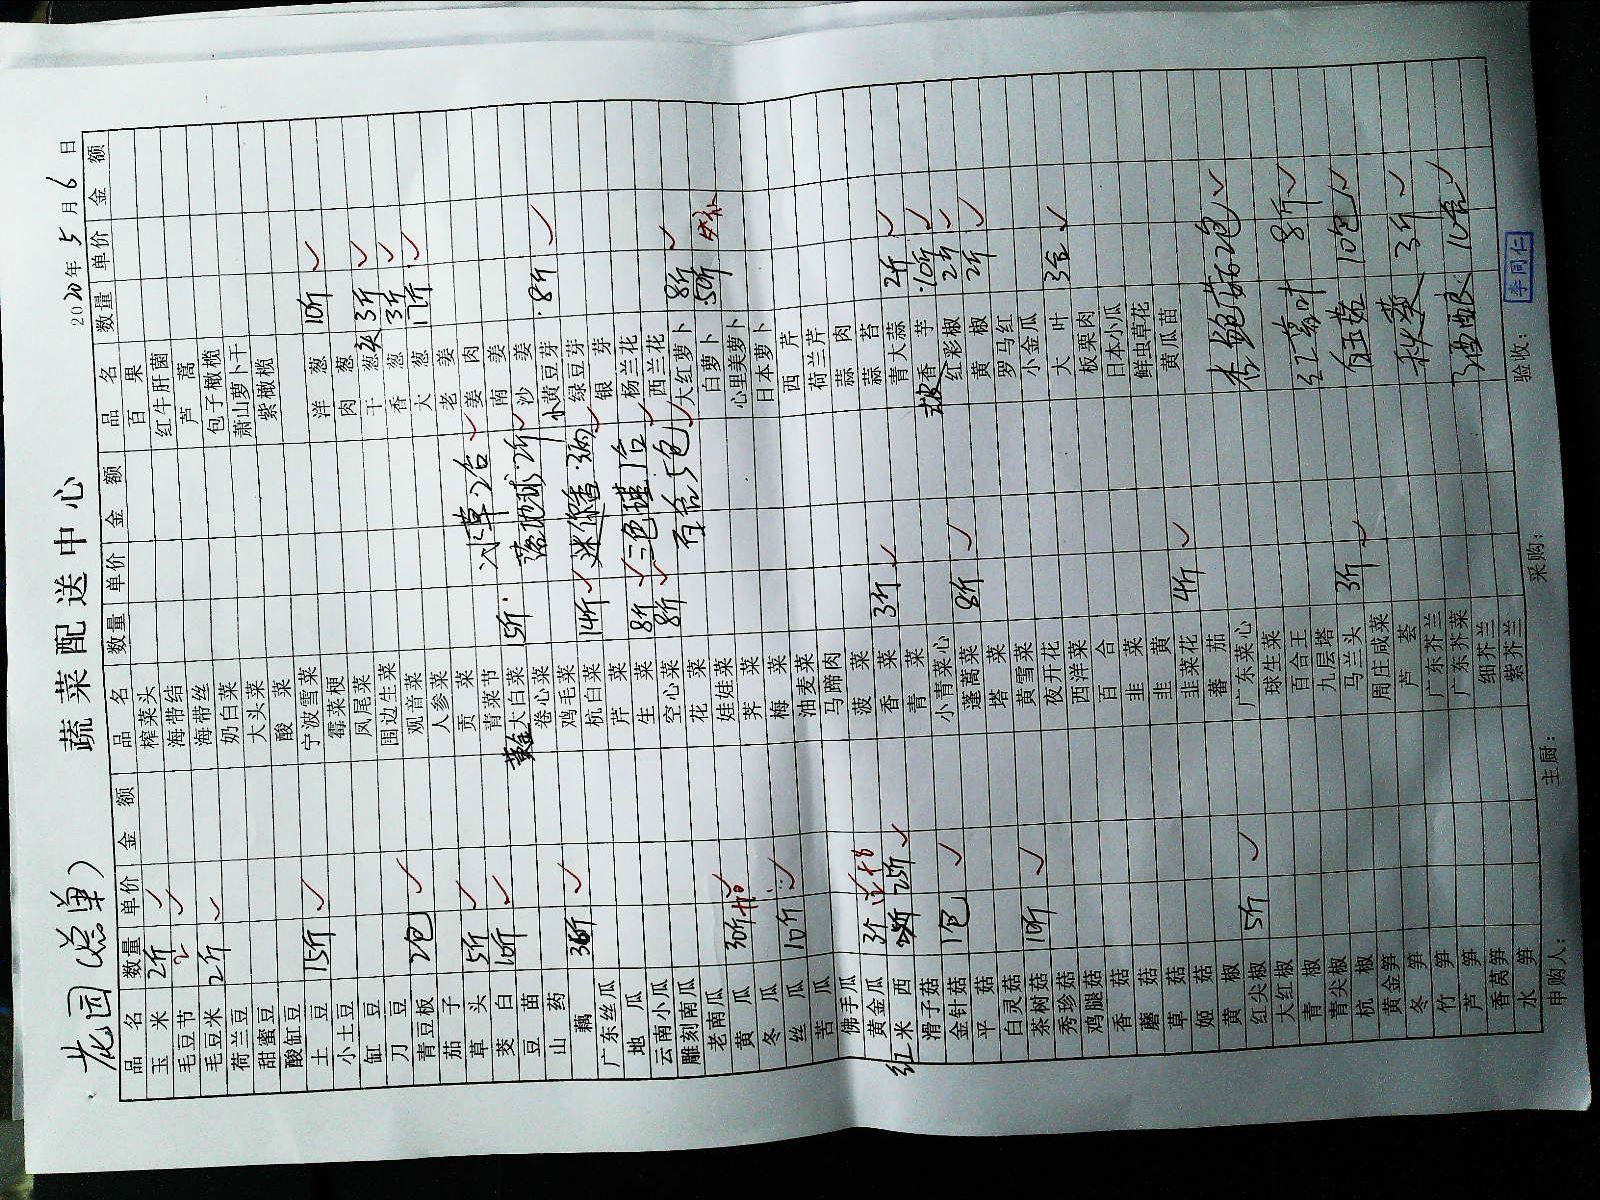 花园(总单)
蔬菜配送中心
2020年5月6日
品名 数量 单价 金额 品名 数量 单价 金额 品名 数量 单价 金额
玉米 2斤 ✓ 榨菜头 百果
毛豆节 2 ✓ 海带结 红牛肝菌
毛豆米 2斤 ✓ 海带丝 芦蒿
荷兰豆 奶白菜 包子橄榄
甜蜜豆 大头菜 萧山萝卜干
酸缸豆 酸菜 紫橄榄
土豆 15斤 ✓ 宁波雪菜
小土豆 霉菜梗 洋葱 10斤 ✓
缸豆 凤尾菜 肉葱
刀豆 围边生菜 干葱头 3斤 ✓
青豆板 2包 ✓ 观音菜 香葱 3斤 ✓
茄子 人参菜 大葱 17斤 ✓
草头 5斤 ✓ 贡菜 老姜
茭白 10斤 ✓ 青菜节 水草 2合 ✓ 姜肉
豆苗 黄金大白菜 15斤 南姜
山药 卷心菜 落地球 2斤 ✓ 沙姜
藕 36斤 ✓ 鸡毛菜 小黄豆芽 8斤 ✓
广东丝瓜 杭白菜 14斤 ✓ 迷你香 ✓ 绿豆芽
地瓜 芹菜 银芽
云南小瓜 生菜 8斤 ✓ 三色堇 1合 ✓ 杨兰花
雕刻南瓜 空心菜 8斤 ✓ 西兰花
老南瓜 花菜 百合 5包 ✓ 大红萝卜 8斤 ✓
黄瓜 30斤 ✓ 娃娃菜 白萝卜 50斤
冬瓜 荠菜 心里美萝卜
丝瓜 10斤 ✓ 梅菜 日本萝卜
苦瓜 油麦菜 西芹
佛手瓜 马蹄肉 荷兰芹
黄金瓜 3斤 菠菜 蒜肉
红米西 25斤 ✓ 香菜 3斤 ✓ 蒜苔
滑子菇 青菜 青大蒜 2斤 ✓
金针菇 1包 ✓ 小青菜心 香芋 10斤 ✓
平菇 蓬蒿菜 8斤 ✓ 红彩椒 2斤 ✓
白灵菇 塔菜 黄椒 2斤 ✓
茶树菇 10斤 ✓ 黄雪菜 罗马红
秀珍菇 夜开花 小金瓜
鸡腿菇 西洋菜 大叶 3合 ✓
香菇 百合 板栗肉
蘑菇 韭菜 日本小瓜
草菇 韭黄 鲜虫草花
姬菇 韭菜花 4斤 ✓ 黄瓜苗
黄椒 蕃茄
红尖椒 5斤 ✓ 广东菜心 杏鲍菇 2包 ✓
大红椒 球生菜
青椒 百合王 红苋叶 8斤 ✓
青尖椒 九层塔
杭椒 马兰头 3斤 ✓ 白玉菇 10包 ✓
黄金笋 周庄咸菜
冬笋 芦荟 秋葵 3斤 ✓
竹笋 广东芥兰
芦笋 广东芥菜 酒酿 10合 ✓
香莴笋 细芥兰
水笋 紫芥兰
申购人: 主厨: 采购: 验收: 李同仁